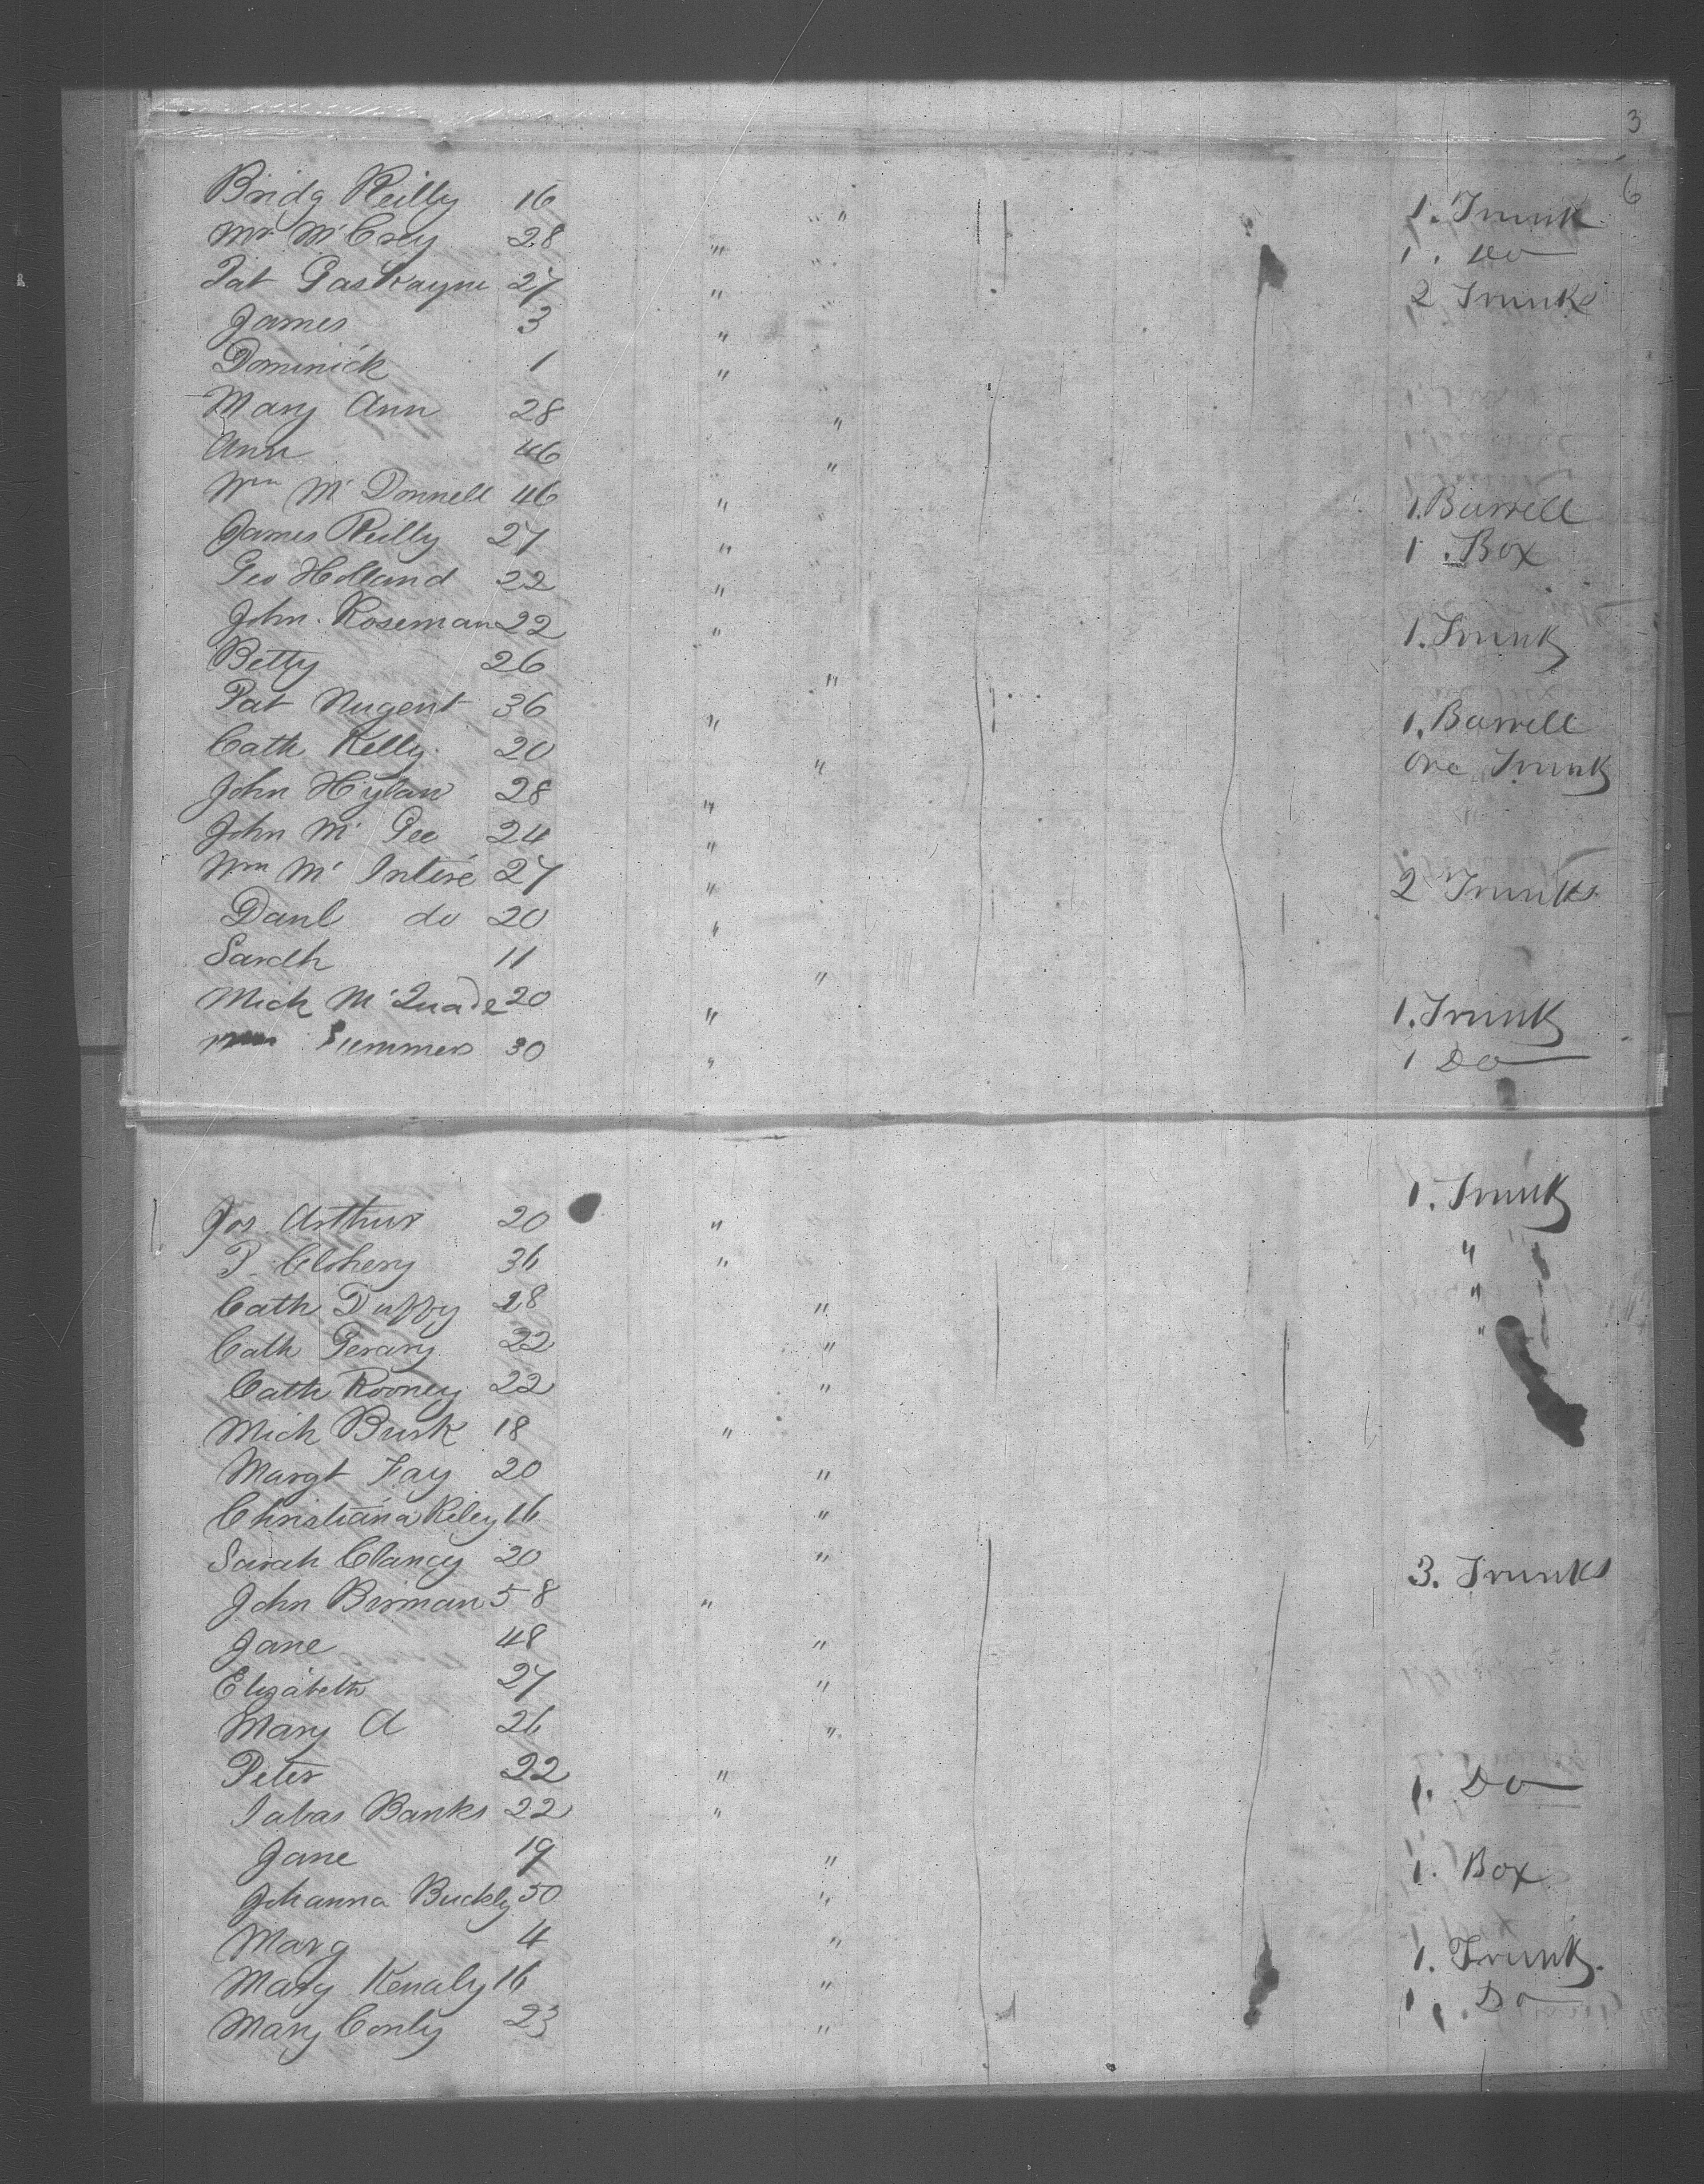 3
6
Bridg Reilly 16 " 1. Trunk
Mr McCrey 28 " " 1. Do
Pat Gaskayne 27 " 2 Trunks
James 3 "
Dominick 1 "
Mary Ann 28 "
Ann 46 "
Wm Mc Donnell 46 " 1. Barrell
James Reilly 27 " 1. Box
Geo Holland 22 "
John Roseman 22 " 1. Trunk
Betty 26 "
Pat Nugent 36 " 1. Barrell
Cath Kelly 20 " one Trunk
John Hylan 28 " "
John Mc Gee 24 "
Wm Mc Intire 27 " 2 Trunks
Danl do 20 "
Sarah 11 "
Mich McQuade 20 " 1. Trunk
Summers 30 " 1 Do
Jos Arthur 20 " 1. Trunk
P. Clohery 36 " "
Cath Duffy 28 " "
Cath Gerary 22 " "
Cath Rooney 22 "
Mich Burk 18 "
Margt Fay 20 "
Christiana Riley 16 "
Sarah Clancy 20 "
John Birman 58 " 3. Trunks
Jane 48 "
Elizabeth 27 "
Mary A 26 "
Peter 22 "
Banks 22 " 1. Do
Jane 19 "
Johanna Buckly 50 " 1. Box
Marg 4 "
Mary Kenaly 16 " 1. Trunk.
Mary Conly 23 " 1. Do